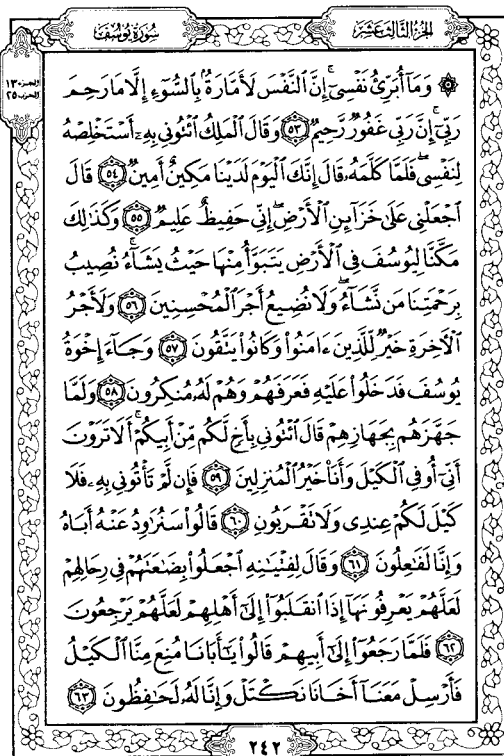 الجزء الثالث عشر
سورة يوسف
الجزء ١٣
الحزب ٢٥
۞ وَمَآ أُبَرِّئُ نَفْسِيٓ ۚ إِنَّ ٱلنَّفْسَ لَأَمَّارَةُۢ بِٱلسُّوٓءِ إِلَّا مَا رَحِمَ
رَبِّيٓ ۚ إِنَّ رَبِّي غَفُورٌ رَّحِيمٌ ٥٣ وَقَالَ ٱلْمَلِكُ ٱئْتُونِي بِهِۦٓ أَسْتَخْلِصْهُ
لِنَفْسِي ۖ فَلَمَّا كَلَّمَهُۥ قَالَ إِنَّكَ ٱلْيَوْمَ لَدَيْنَا مَكِينٌ أَمِينٌ ٥٤ قَالَ
ٱجْعَلْنِي عَلَىٰ خَزَآئِنِ ٱلْأَرْضِ ۖ إِنِّي حَفِيظٌ عَلِيمٌ ٥٥ وَكَذَٰلِكَ
مَكَّنَّا لِيُوسُفَ فِي ٱلْأَرْضِ يَتَبَوَّأُ مِنْهَا حَيْثُ يَشَآءُ ۚ نُصِيبُ
بِرَحْمَتِنَا مَن نَّشَآءُ ۖ وَلَا نُضِيعُ أَجْرَ ٱلْمُحْسِنِينَ ٥٦ وَلَأَجْرُ
ٱلْـَٔاخِرَةِ خَيْرٌ لِّلَّذِينَ ءَامَنُوا۟ وَكَانُوا۟ يَتَّقُونَ ٥٧ وَجَآءَ إِخْوَةُ
يُوسُفَ فَدَخَلُوا۟ عَلَيْهِ فَعَرَفَهُمْ وَهُمْ لَهُۥ مُنكِرُونَ ٥٨ وَلَمَّا
جَهَّزَهُم بِجَهَازِهِمْ قَالَ ٱئْتُونِي بِأَخٍ لَّكُم مِّنْ أَبِيكُمْ ۚ أَلَا تَرَوْنَ
أَنِّيٓ أُوفِي ٱلْكَيْلَ وَأَنَا۠ خَيْرُ ٱلْمُنزِلِينَ ٥٩ فَإِن لَّمْ تَأْتُونِي بِهِۦ فَلَا
كَيْلَ لَكُمْ عِندِي وَلَا تَقْرَبُونِ ٦٠ قَالُوا۟ سَنُرَٰوِدُ عَنْهُ أَبَاهُ
وَإِنَّا لَفَٰعِلُونَ ٦١ وَقَالَ لِفِتْيَٰنِهِ ٱجْعَلُوا۟ بِضَٰعَتَهُمْ فِي رِحَالِهِمْ
لَعَلَّهُمْ يَعْرِفُونَهَآ إِذَا ٱنقَلَبُوٓا۟ إِلَىٰٓ أَهْلِهِمْ لَعَلَّهُمْ يَرْجِعُونَ
٦٢ فَلَمَّا رَجَعُوٓا۟ إِلَىٰٓ أَبِيهِمْ قَالُوا۟ يَٰٓأَبَانَا مُنِعَ مِنَّا ٱلْكَيْلُ
فَأَرْسِلْ مَعَنَآ أَخَانَا نَكْتَلْ وَإِنَّا لَهُۥ لَحَٰفِظُونَ ٦٣
٢٤٢